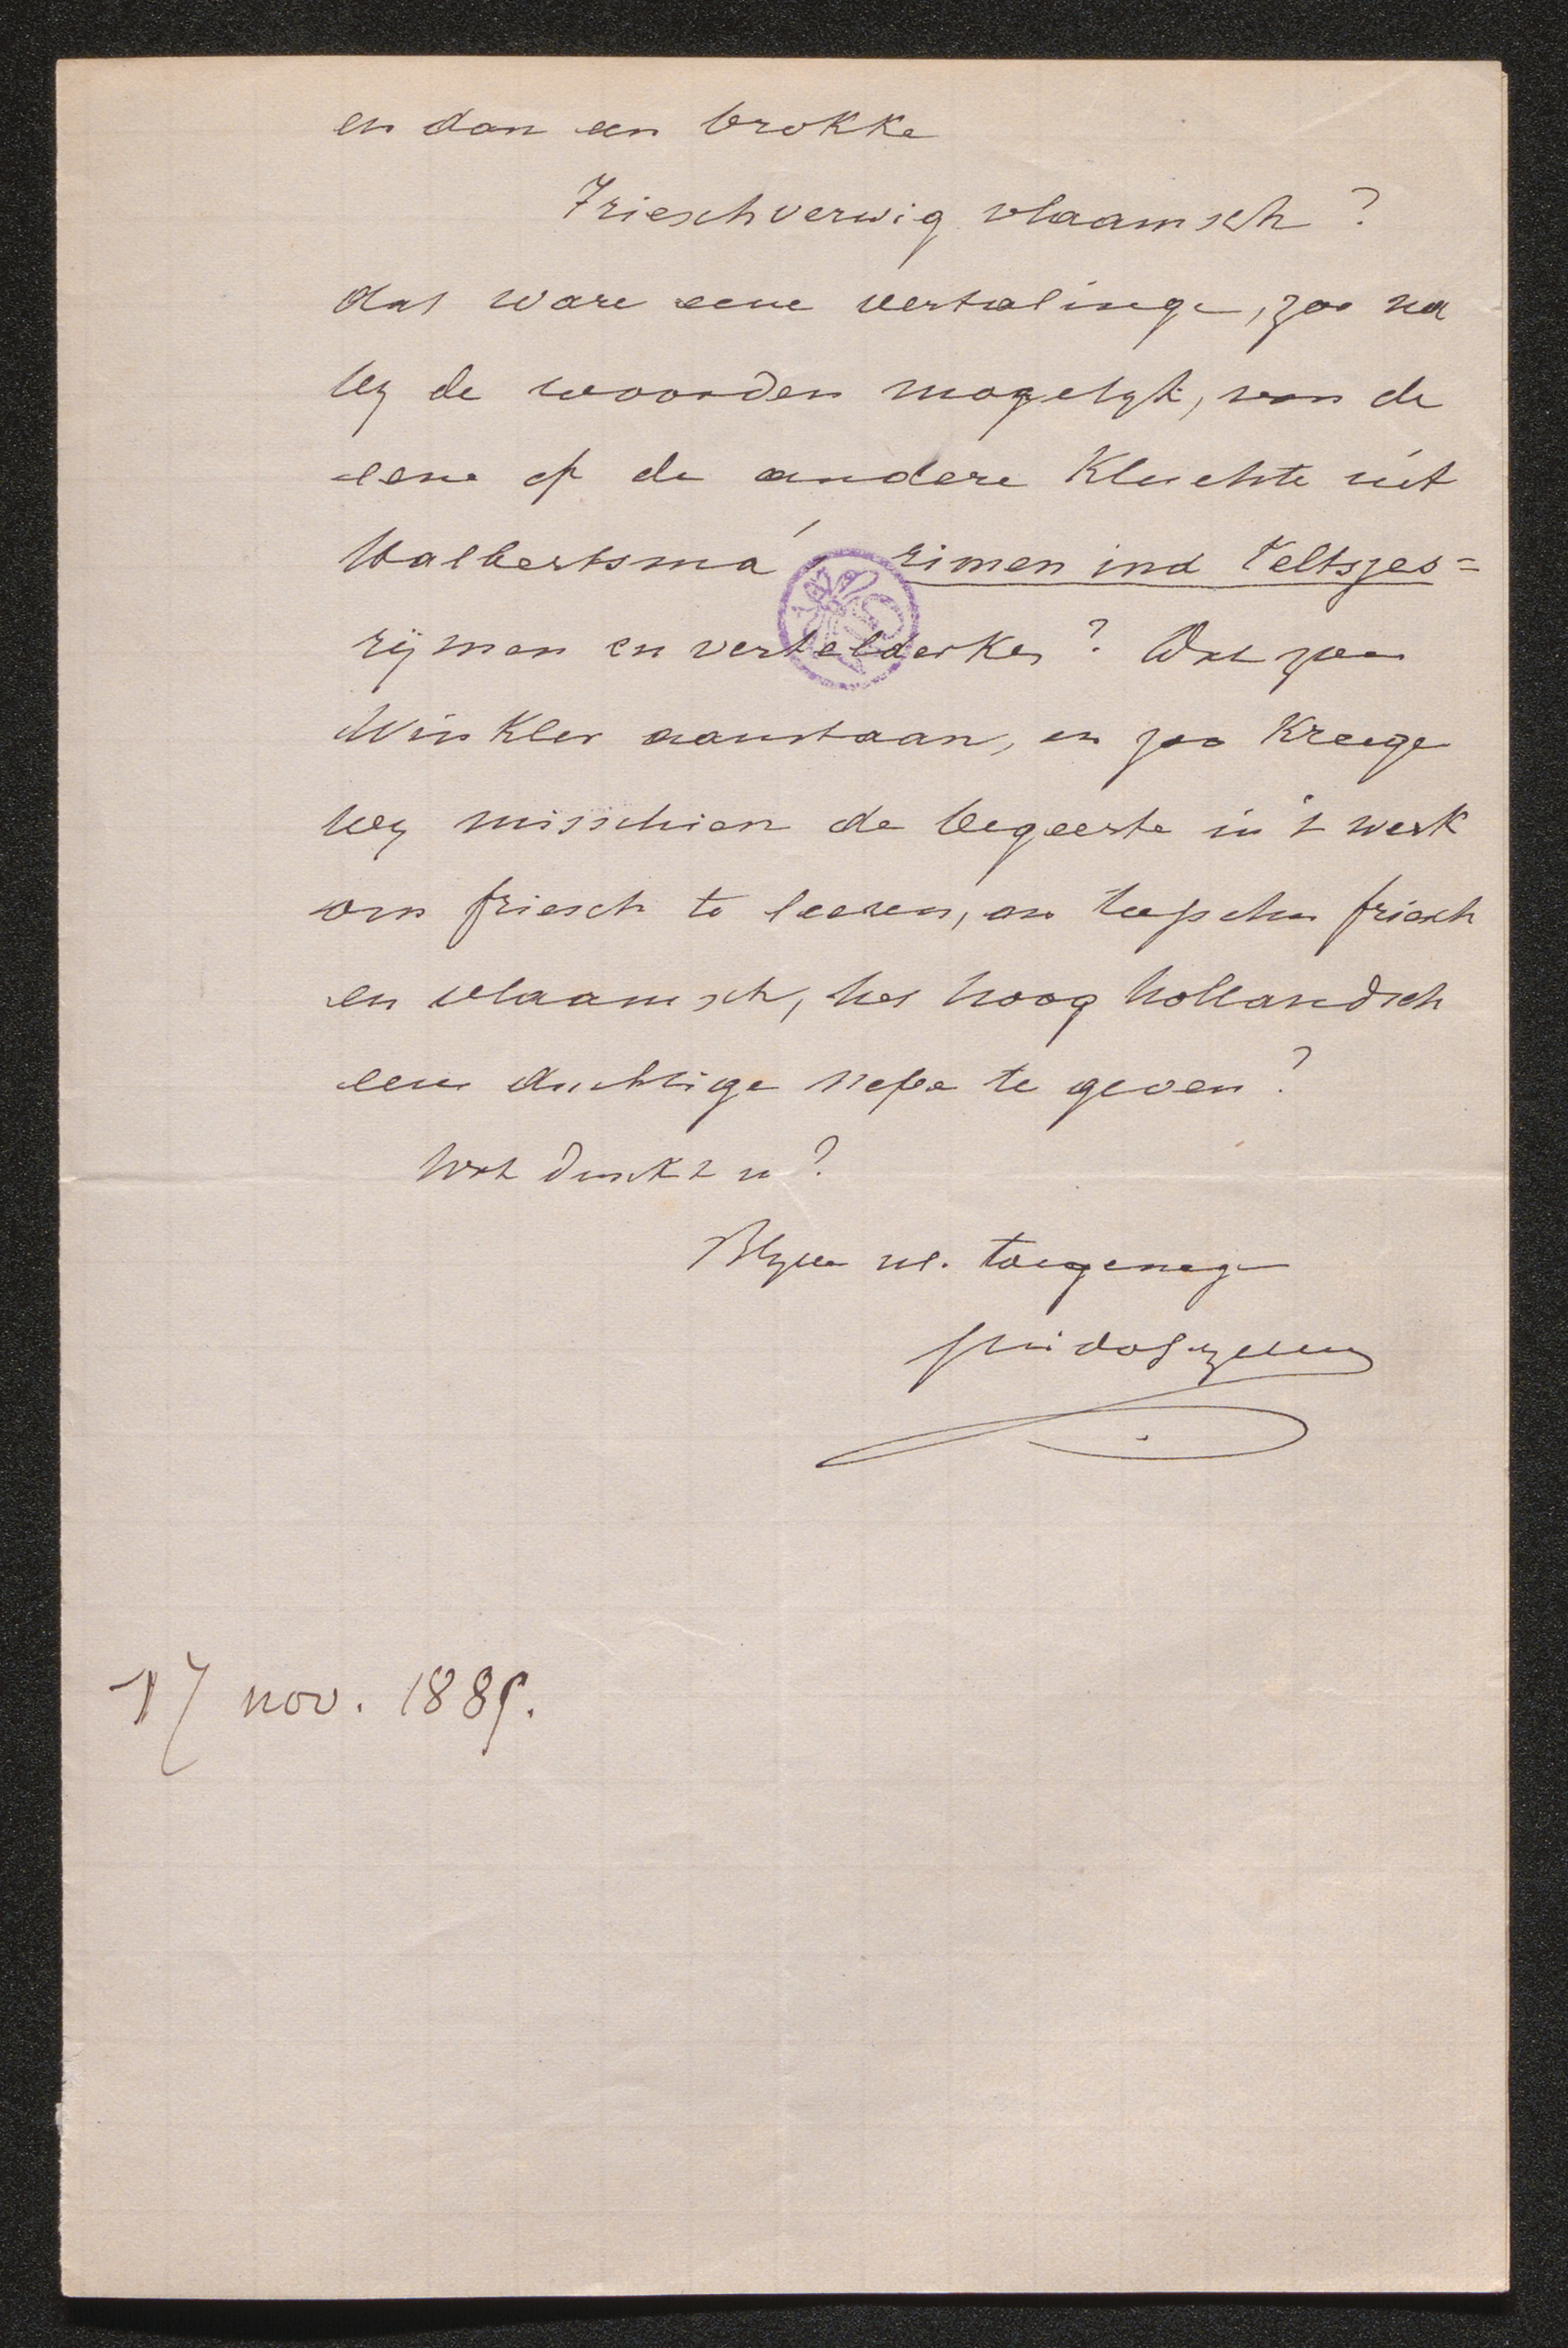 en dan een brokke
Frieschverwig vlaamsch?
dat ware eene vertalinge, zoo na
by de woorden mogelyk, van de
eene of de andere kluchte uit
Halbertsma's rimen ind teltsjes =
rijmen en vertelderkes? Dat zou
Winkler aanstaan, en zoo kreege
wy misschien de begeerte in 't werk
om friesch te leeren, om tusschen friesch
en vlaamsch, het hoog hollandsch
eene duchtige nepe te geven?
Wat dunkt u?
Blyve ul. toegeneg
Guido Gezelle
17 nov. 1885.